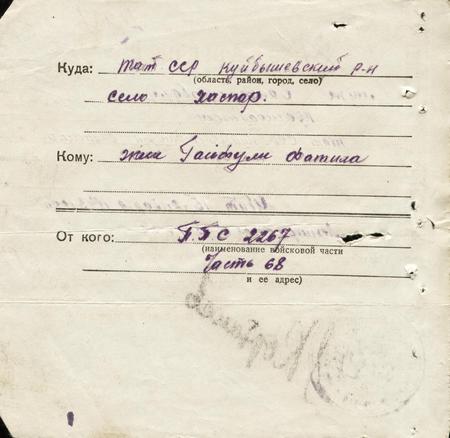 Куда: тат ССР Куйбышевский р-н
(область, район, город, село)
село хаспар.
Кому: жена Гайфули Фатиле
От кого: П.П.С 2267
(наименование войсковой части
Часть 68
и ее адрес)